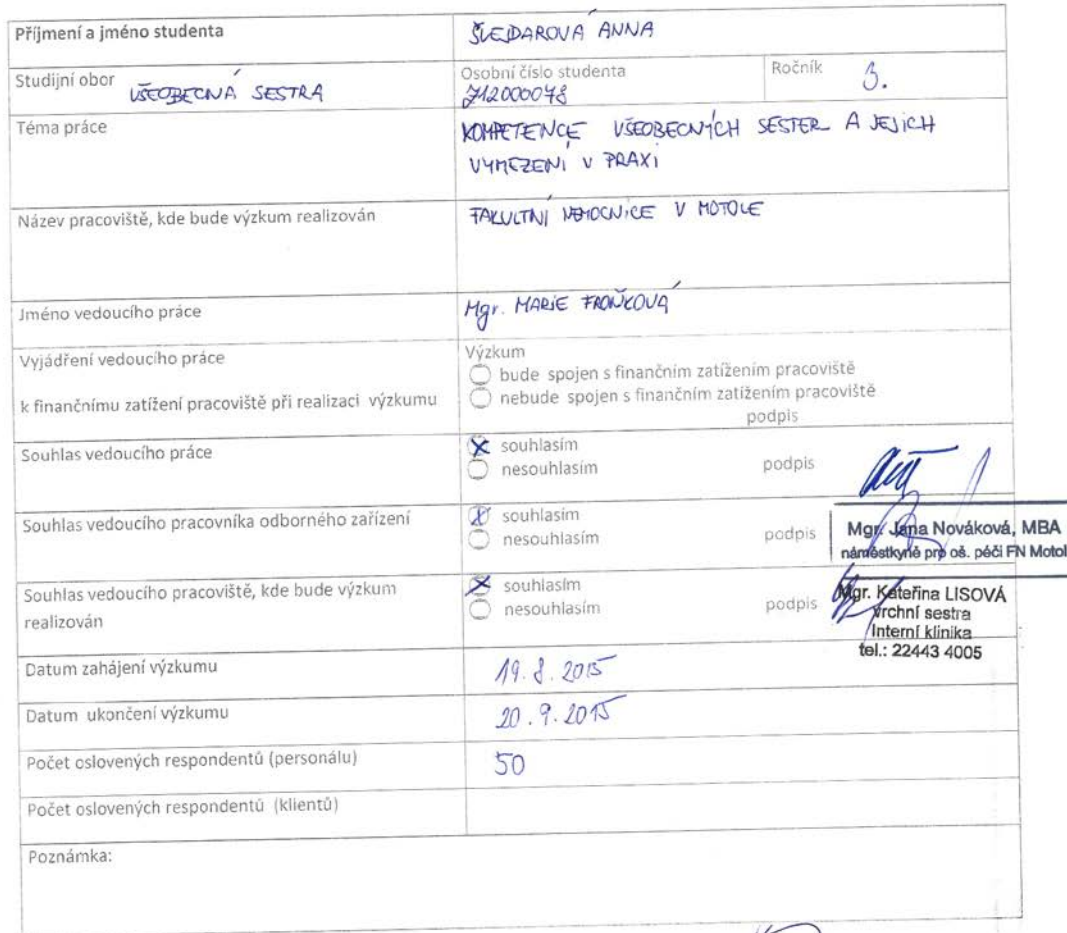 Příjmení a jméno studenta
ŠLEJDAROVÁ ANNA
Studijní obor
VŠEOBECNÁ SESTRA
Osobní číslo studenta
712000078
Ročník
3.
Téma práce
KOMPETENCE VŠEOBECNÝCH SESTER A JEJICH
VYMEZENÍ V PRAXI
Název pracoviště, kde bude výzkum realizován
FAKULTNÍ NEMOCNICE V MOTOLE
Jméno vedoucího práce
Mgr. MARIE FROŇKOVÁ
Vyjádření vedoucího práce
k finančnímu zatížení pracoviště při realizaci výzkumu
Výzkum
bude spojen s finančním zatížením pracoviště
nebude spojen s finančním zatížením pracoviště
podpis
Souhlas vedoucího práce
souhlasím
nesouhlasím
podpis
Souhlas vedoucího pracovníka odborného zařízení
souhlasím
nesouhlasím
podpis
Mgr. Jana Nováková, MBA
náměstkyně pro oš. péči FN Motol
Souhlas vedoucího pracoviště, kde bude výzkum
realizován
souhlasím
nesouhlasím
podpis
Mgr. Kateřina LISOVÁ
vrchní sestra
Interní klinika
tel.: 22443 4005
Datum zahájení výzkumu
19. 8. 2015
Datum ukončení výzkumu
20. 9. 2015
Počet oslovených respondentů (personálu)
50
Počet oslovených respondentů (klientů)
Poznámka: